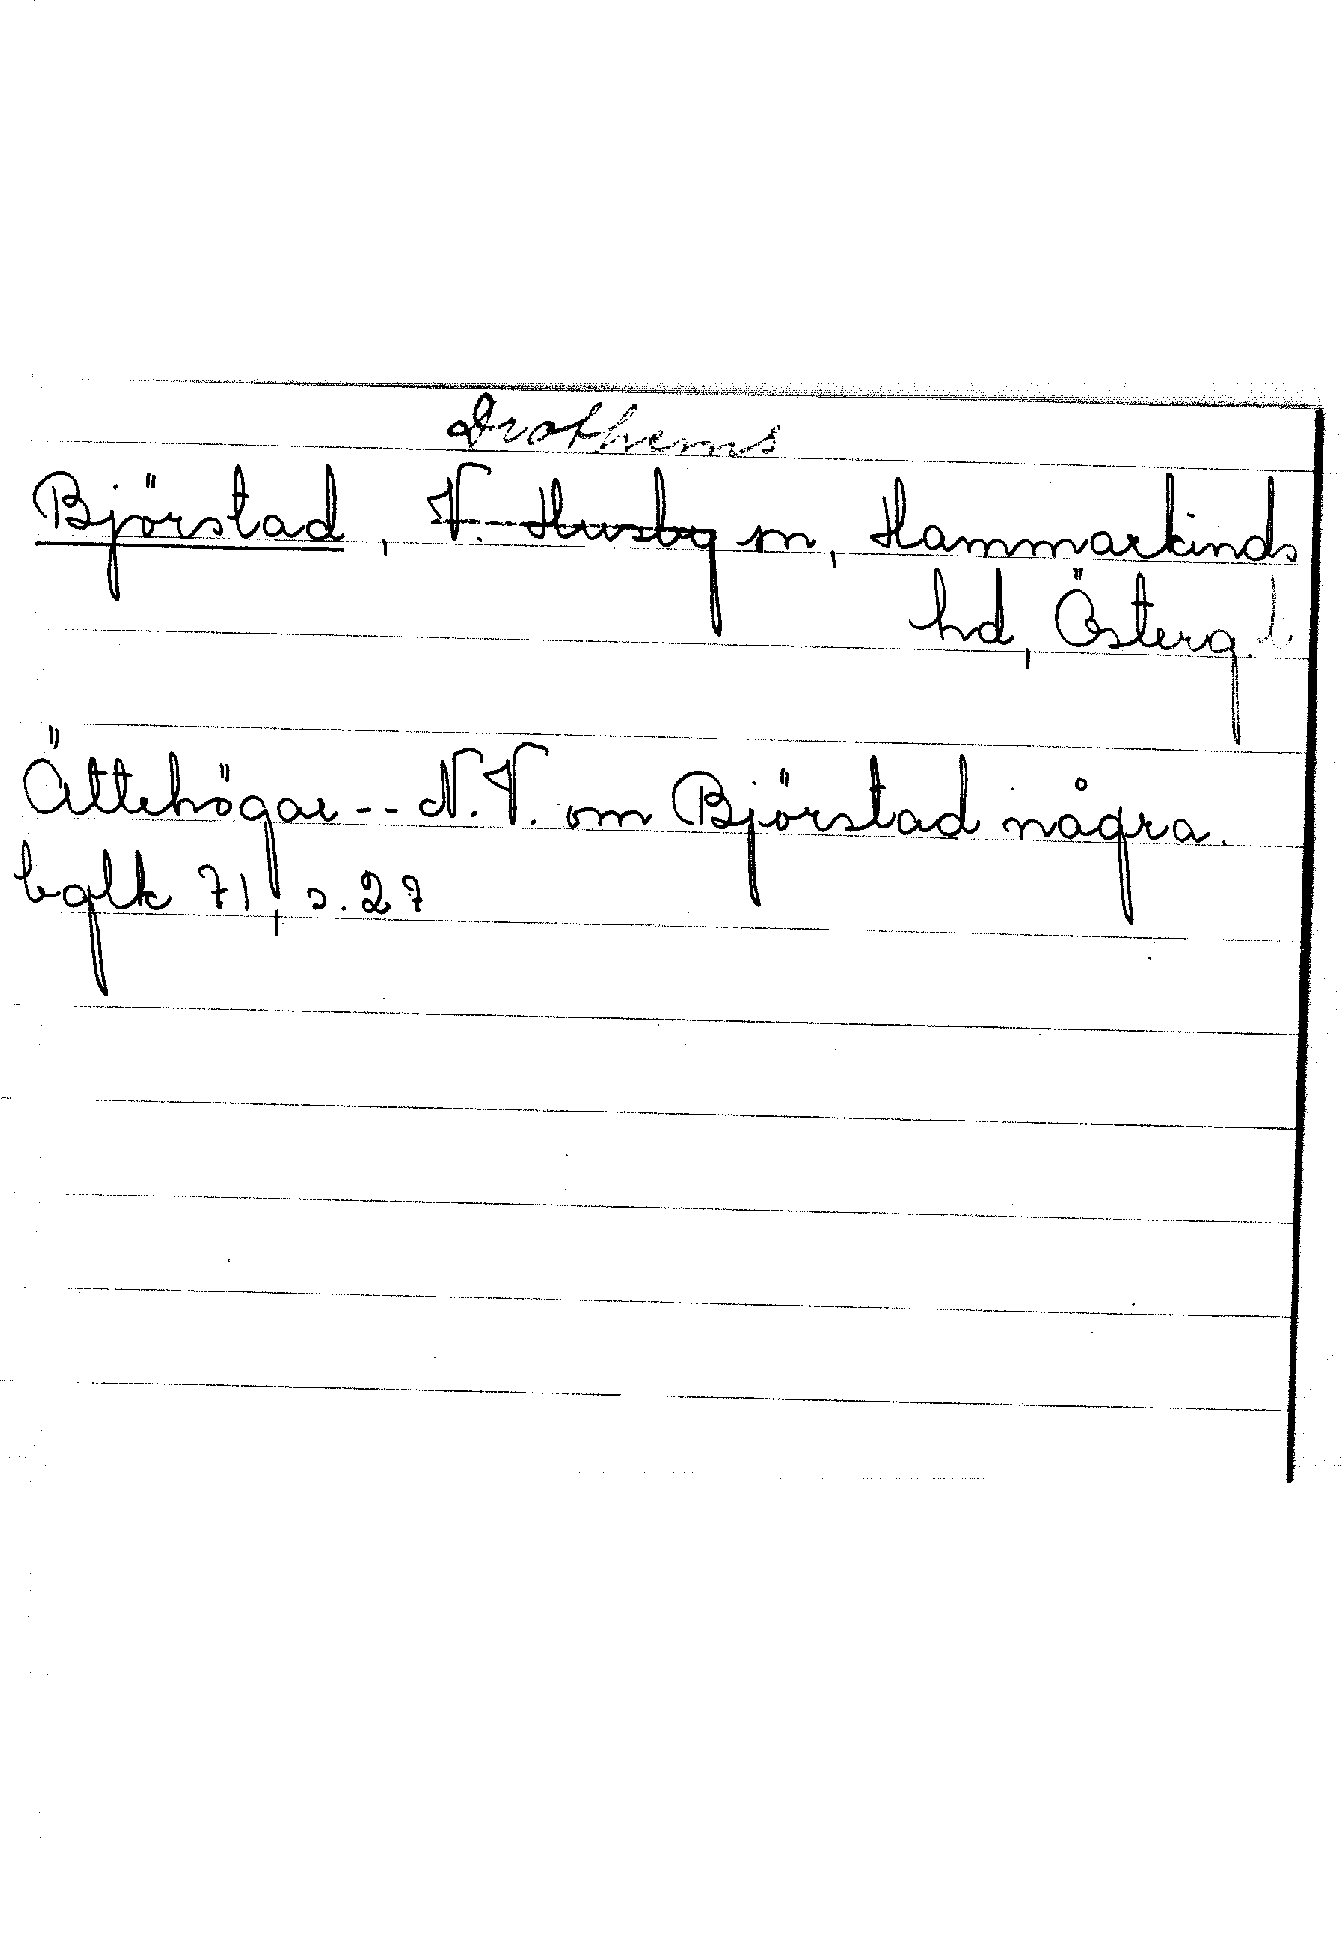 Drothems
Björstad, V. Husby sn, Hammarkinds
hd, Österg. l.
Ättehögar -- N.V. om Björstad några.
bglk 71, s. 27